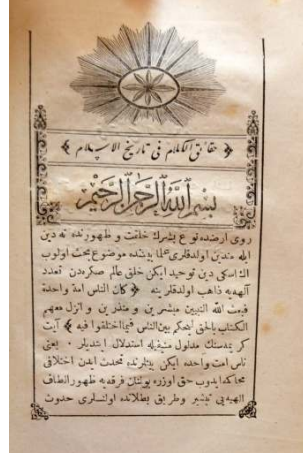 حقائق الكلام فی تاريخ الاسلام
بسم الله الرحمن الرحيم
روی ارضده نوع بشرك خلقت و ظهورنده نه دين
ايله متدين اولدقلری علما بيننده موضوع بحث اولوب
اك اسكی دين توحيد ايكن خلق عالم صكره‌دن تعدد
آلهه‌يه ذاهب اولدقلرينه ﴿ كان الناس امة واحدة
فبعث الله النبيين مبشرين و منذرين و انزل معهم
الكتاب بالحق ليحكم بين الناس فيما اختلفوا فيه ﴾ آيت
كريمه‌سنك مدلول منيفيله استدلال ايتديلر • يعنی
ناس امت واحده ايكن بينلرنده تحدث ايدن اختلافی
محاكمه ايدوب حق اوزره بولنان فرقه‌يه ظهور الطاف
الهيه‌يی تبشير وطريق بطلانده اولنلری حدوث